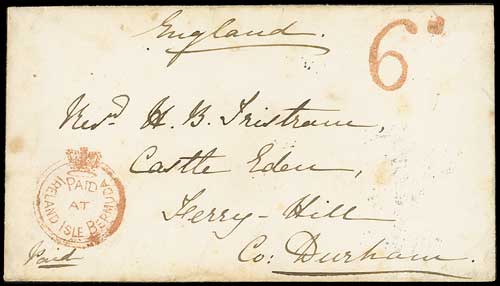 England.
6d
Revd. H. B. Tristram,
Castle Eden,
Ferry-Hill
Co: Durham.
PAID
AT
IRELAND ISLE BERMUDA
Paid